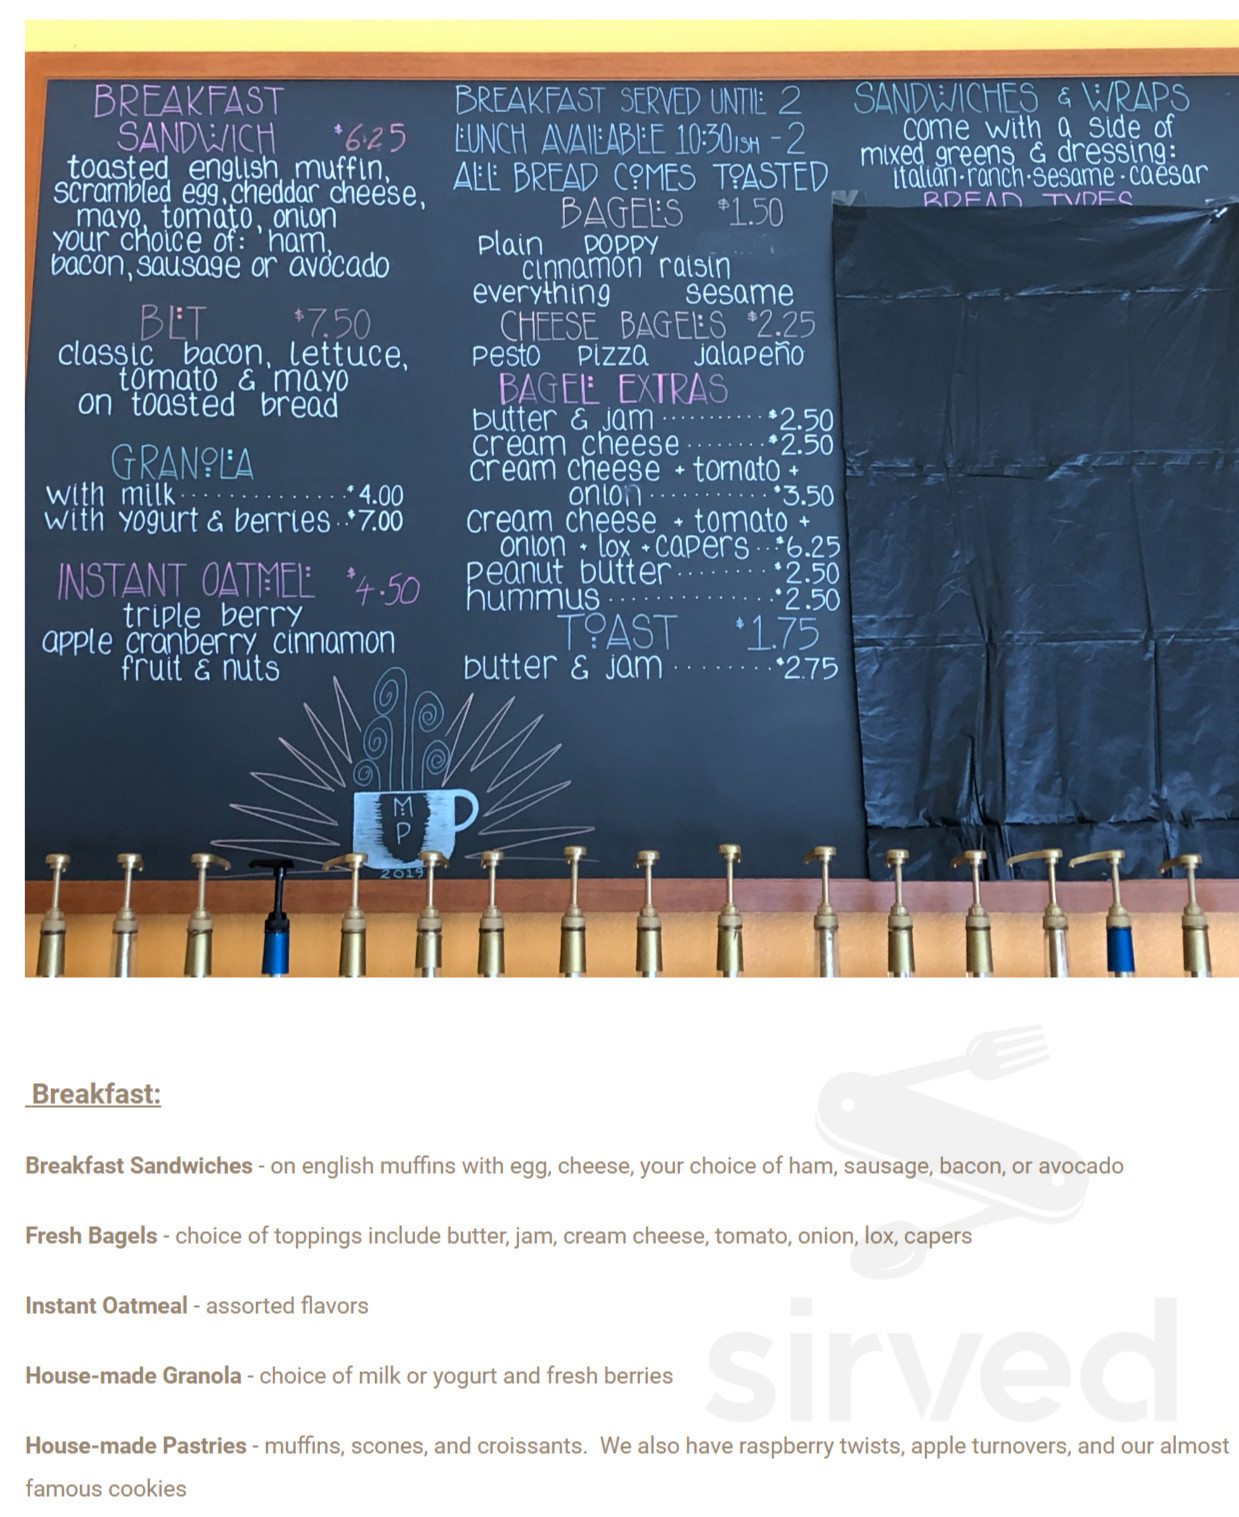 BREAKFAST
SANDWICH $6.25
toasted english muffin,
scrambled egg, cheddar cheese,
mayo, tomato, onion
your choice of: ham,
bacon, sausage or avocado
BLT $7.50
classic bacon, lettuce,
tomato & mayo
on toasted bread
GRANOLA
with milk.............$4.00
with yogurt & berries..$7.00
INSTANT OATMEL $4.50
triple berry
apple cranberry cinnamon
fruit & nuts
BREAKFAST SERVED UNTIL 2
LUNCH AVAILABLE 10:30ISH - 2
ALL BREAD COMES TOASTED
BAGELS $1.50
Plain POPPY
cinnamon raisin
everything sesame
CHEESE BAGELS $2.25
Pesto Pizza jalapeño
BAGEL EXTRAS
butter & jam..........$2.50
cream cheese........$2.50
cream cheese + tomato +
onion...........$3.50
cream cheese + tomato +
onion + lox + capers...$6.25
peanut butter........$2.50
hummus.............$2.50
TOAST $1.75
butter & jam........$2.75
SANDWICHES & WRAPS
come with a side of
mixed greens & dressing:
italian·ranch·sesame·caesar
BREAD TYPES
M
P
2019
Breakfast:
Breakfast Sandwiches - on english muffins with egg, cheese, your choice of ham, sausage, bacon, or avocado
Fresh Bagels - choice of toppings include butter, jam, cream cheese, tomato, onion, lox, capers
Instant Oatmeal - assorted flavors
House-made Granola - choice of milk or yogurt and fresh berries
House-made Pastries - muffins, scones, and croissants.  We also have raspberry twists, apple turnovers, and our almost
famous cookies
sirved